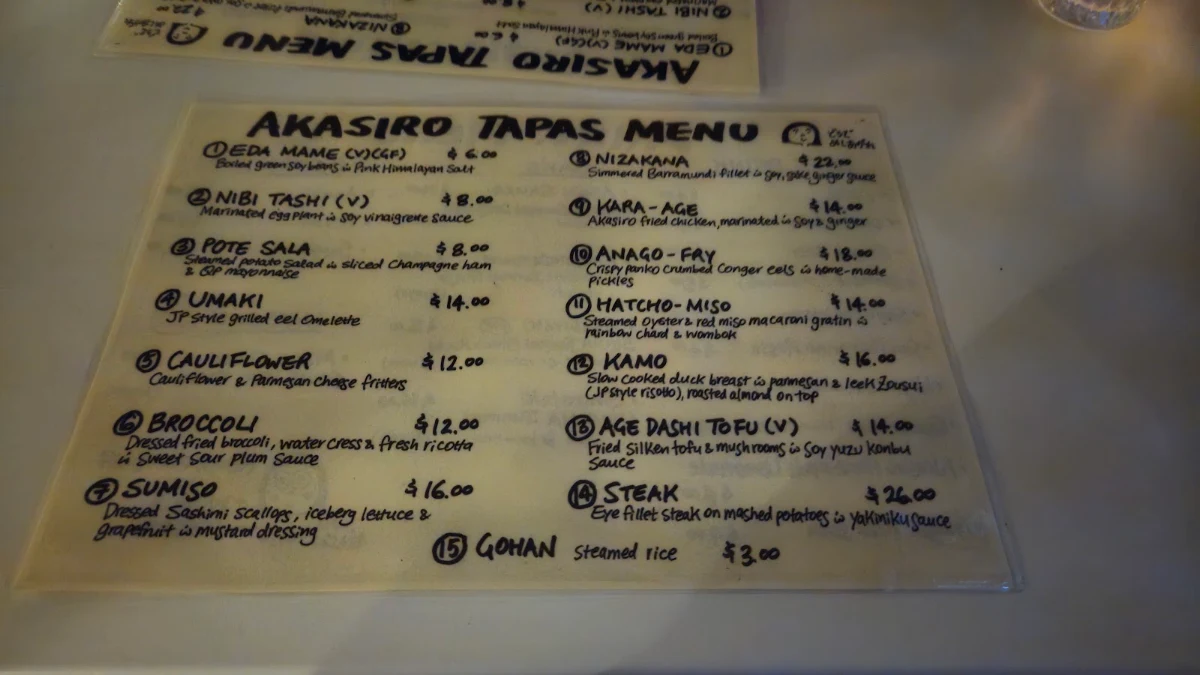 AKASIRO TAPAS MENU
① EDA MAME (V)(GF) $6.00
Boiled green soy beans w Pink Himalayan Salt
② NIBI TASHI (V) $8.00
Marinated egg plant w soy vinaigrette sauce
③ POTE SALA $8.00
Steamed potato salad w sliced Champagne ham
& QP mayonnaise
④ UMAKI $14.00
JP Style grilled eel Omelette
⑤ CAULIFLOWER $12.00
Cauliflower & Parmesan cheese fritters
⑥ BROCCOLI $12.00
Dressed fried broccoli, water cress & fresh ricotta
w Sweet Sour Plum Sauce
⑦ SUMISO $16.00
Dressed Sashimi Scallops, iceberg lettuce &
grapefruit w mustard dressing
⑧ NIZAKANA $22.00
Simmered Barramundi fillet w soy, sake, ginger sauce
⑨ KARA-AGE $14.00
Akasiro fried chicken, marinated w soy & ginger
⑩ ANAGO-FRY $18.00
Crispy panko crumbed Conger eels w home-made
pickles
⑪ HATCHO-MISO $14.00
Steamed oyster & red miso macaroni gratin w
rainbow chard & wombok
⑫ KAMO $16.00
Slow cooked duck breast w parmesan & leek Zousui
(JP style risotto), roasted almond on top
⑬ AGE DASHI TOFU (V) $14.00
Fried Silken tofu & mushrooms w Soy yuzu konbu
Sauce
⑭ STEAK $26.00
Eye fillet steak on mashed potatoes w yakiniku sauce
⑮ GOHAN Steamed rice $3.00
AKASIRO TAPAS MENU
① EDA MAME (V)(GF) $6.00
Boiled green soy beans w Pink Himalayan Salt
② NIBI TASHI (V)
⑧ NIZAKANA
$22.00